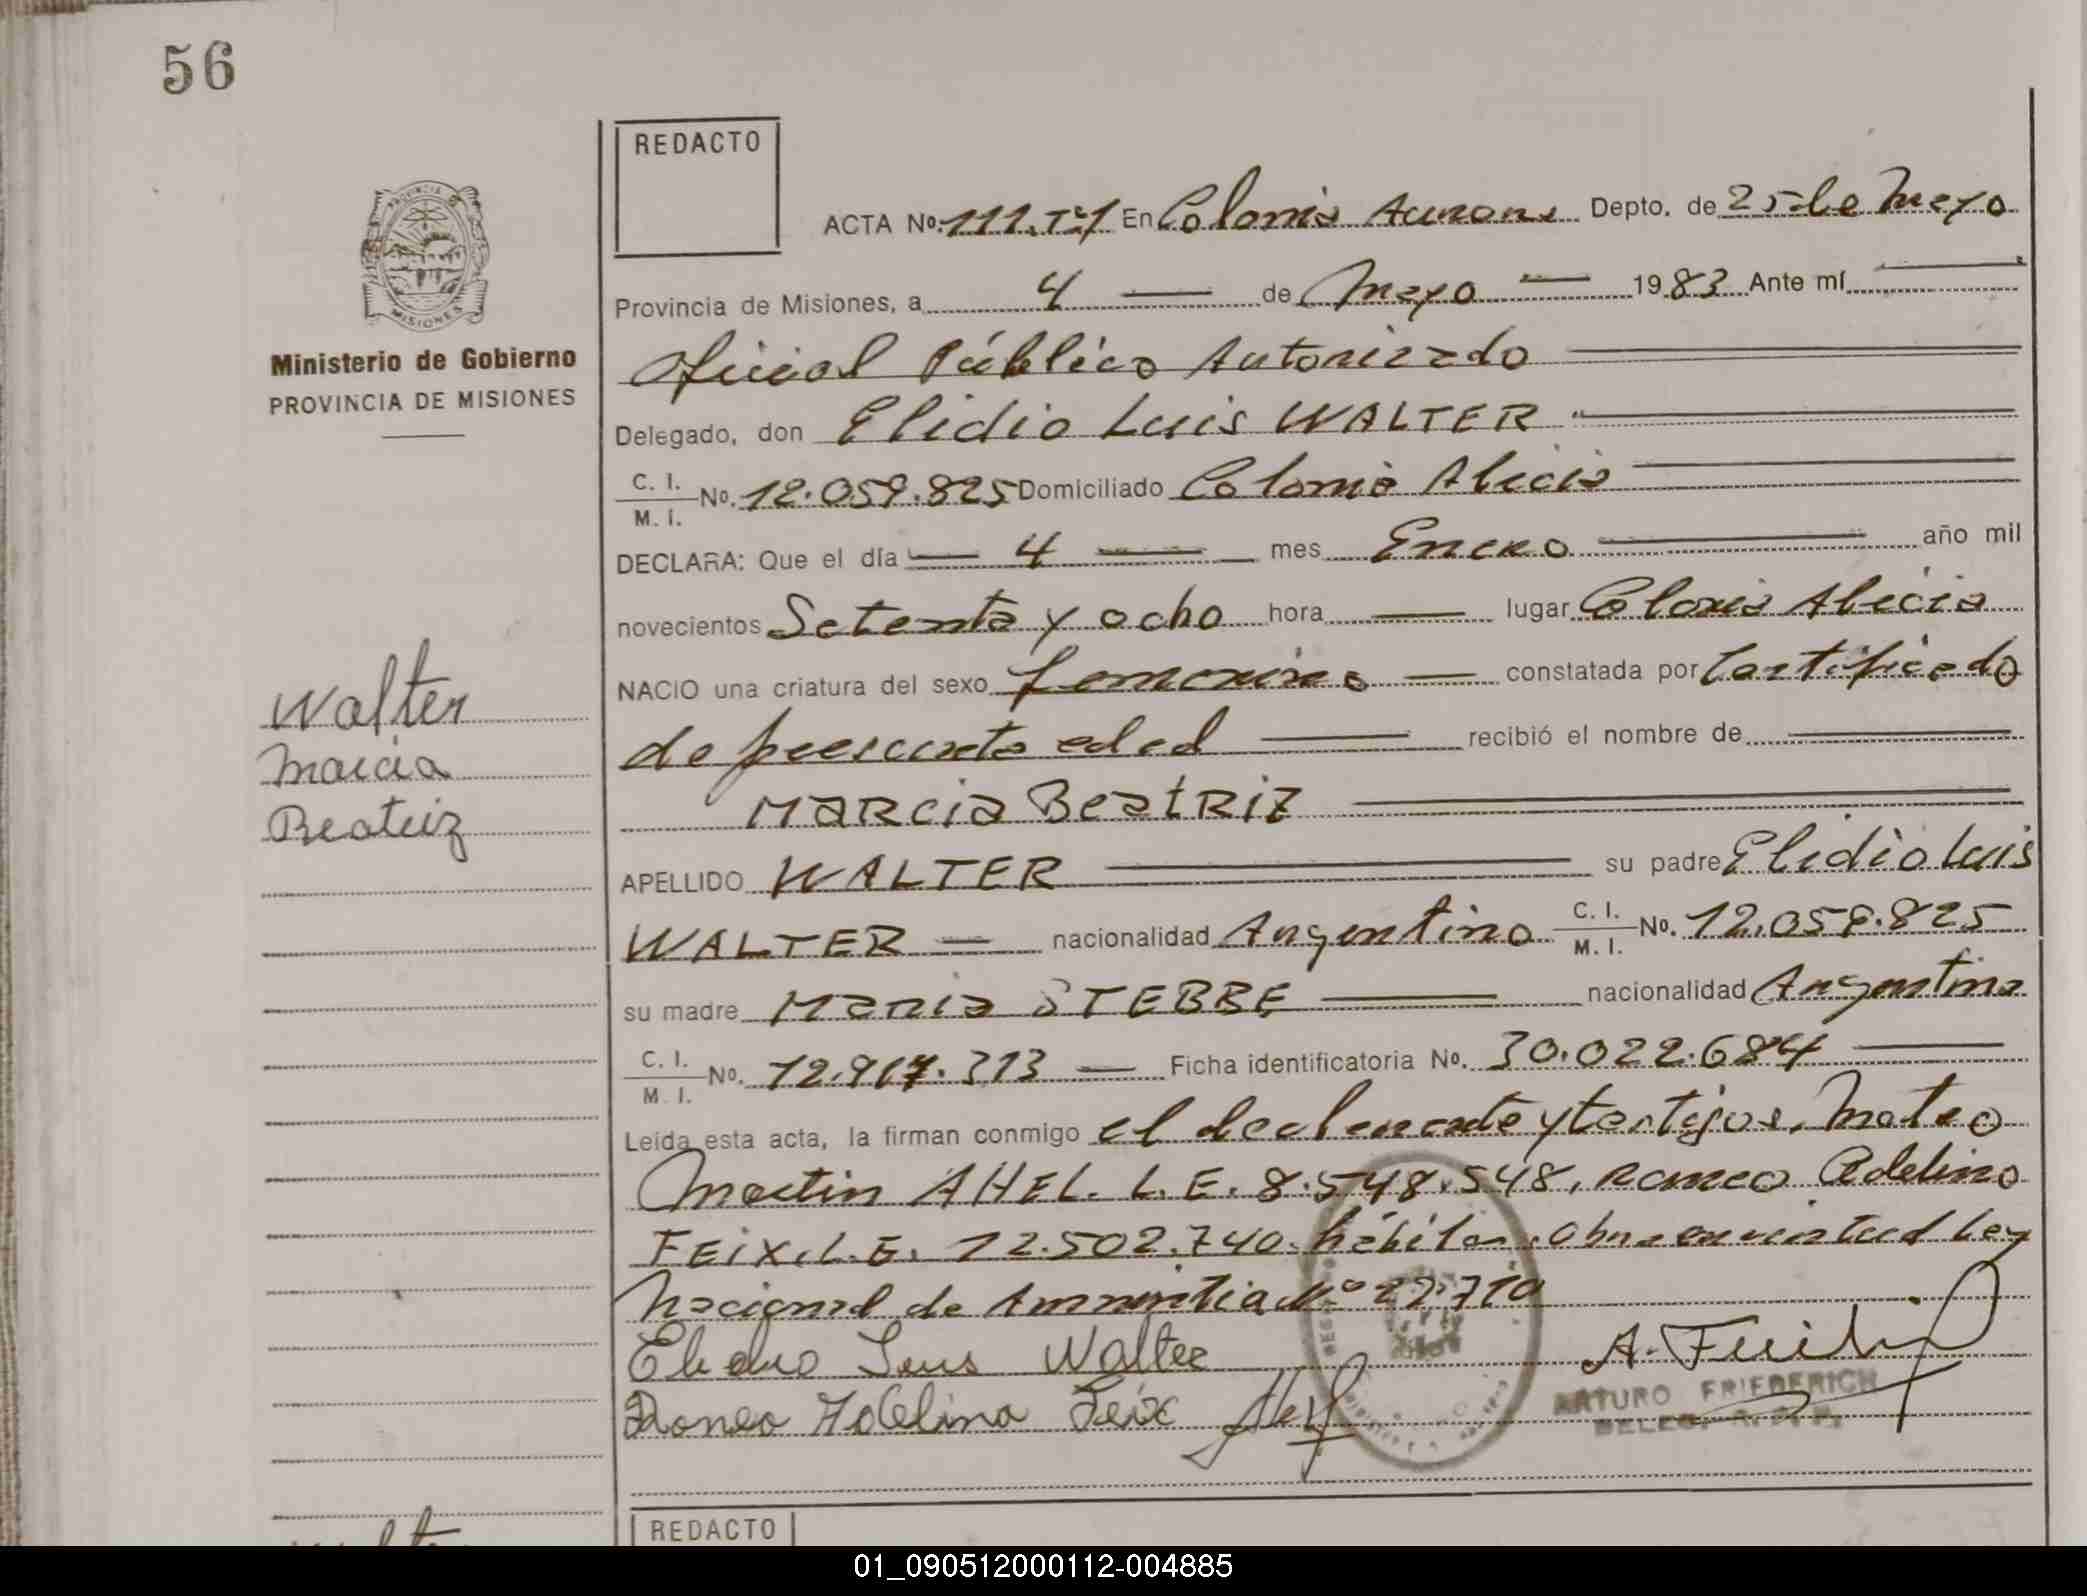 56
REDACTO
ACTA Nº. 111. Tº1 En Colonia Aurora Depto. de 25 de Mayo
PROVINCIA
MISIONES
Ministerio de Gobierno
PROVINCIA DE MISIONES
Provincia de Misiones, a 4 — de Mayo — 1983 Ante mí
Oficial Público Autorizado
Delegado, don Elidio Luis WALTER
C. I.
M. I. Nº. 12.059.825 Domiciliado Colonia Alicia
DECLARA: Que el día — 4 — mes Enero — año mil
novecientos Setenta y ocho hora — lugar Colonia Alicia
NACIO una criatura del sexo femenino — constatada por Certificado
de presunta edad — recibió el nombre de
Walter
Marcia
Beatriz
MARCIA BEATRIZ
APELLIDO WALTER su padre Elidio Luis
WALTER — nacionalidad Argentino C. I.
M. I. Nº. 12.059.825
su madre Maria STEBBE — nacionalidad Argentina
C. I.
M. I. Nº. 12.917.313 — Ficha identificatoria Nº. 30.022.684
Leída esta acta, la firman conmigo el declarante y testigos, Mateo
Martin AHEL. L.E. 8.548.548, Romeo Adelino
FEIX. L.E. 12.502.740. hábiles. Obra en virtud Ley
Nacional de Amnistia Nº 22.710
Elidio Luis Walter
A. Friederich
Romeo Adelino Feix
ARTURO FRIEDERICH
REDACTO
01_090512000112-004885